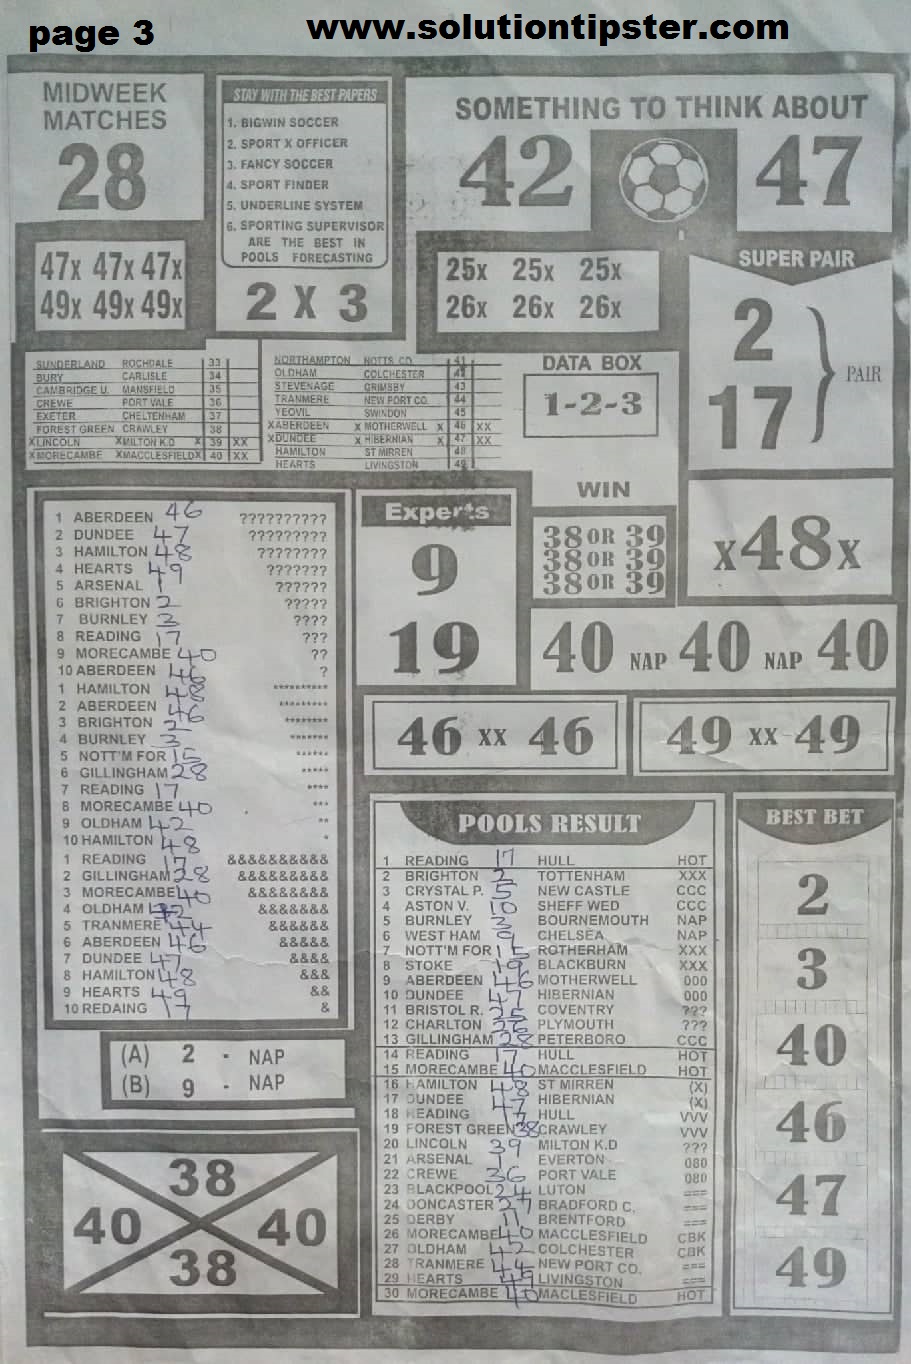 page 3
www.solutiontipster.com
MIDWEEK
MATCHES
28
STAY WITH THE BEST PAPERS
1. BIGWIN SOCCER
2. SPORT X OFFICER
3. FANCY SOCCER
4. SPORT FINDER
5. UNDERLINE SYSTEM
6. SPORTING SUPERVISOR
ARE THE BEST IN
POOLS FORECASTING
2 X 3
SOMETHING TO THINK ABOUT
42 47
47x 47x 47x
49x 49x 49x
25x 25x 25x
26x 26x 26x
SUPER PAIR
2
17
PAIR
SUNDERLAND ROCHDALE 33
BURY CARLISLE 34
CAMBRIDGE U. MANSFIELD 35
CREWE PORT VALE 36
EXETER CHELTENHAM 37
FOREST GREEN CRAWLEY 38
XLINCOLN XMILTON K.D X 39 XX
XMORECAMBE XMACCLESFIELDX 40 XX
NORTHAMPTON NOTTS CO. 41
OLDHAM COLCHESTER 42
STEVENAGE GRIMSBY 43
TRANMERE NEW PORT CO. 44
YEOVIL SWINDON 45
XABERDEEN X MOTHERWELL X 46 XX
XDUNDEE X HIBERNIAN X 47 XX
HAMILTON ST MIRREN 48
HEARTS LIVINGSTON 49
DATA BOX
1-2-3
WIN
1 ABERDEEN 46 ??????????
2 DUNDEE 47 ?????????
3 HAMILTON 48 ????????
4 HEARTS 49 ???????
5 ARSENAL 1 ??????
6 BRIGHTON 2 ?????
7 BURNLEY 3 ????
8 READING 17 ???
9 MORECAMBE 40 ??
10 ABERDEEN 46 ?
1 HAMILTON 48 **********
2 ABERDEEN 46 *********
3 BRIGHTON 2 ********
4 BURNLEY 3 *******
5 NOTT'M FOR 15 ******
6 GILLINGHAM 28 *****
7 READING 17 ****
8 MORECAMBE 40 ***
9 OLDHAM 42 **
10 HAMILTON 48 *
1 READING 17 &&&&&&&&&&
2 GILLINGHAM 28 &&&&&&&&&
3 MORECAMBE 40 &&&&&&&&
4 OLDHAM 42 &&&&&&&
5 TRANMERE 44 &&&&&&
6 ABERDEEN 46 &&&&&
7 DUNDEE 47 &&&&
8 HAMILTON 48 &&&
9 HEARTS 49 &&
10 REDAING 17 &
Experts
9
19
38 OR 39
38 OR 39
38 OR 39
X48X
40 NAP 40 NAP 40
46 XX 46
49 XX 49
(A) 2 - NAP
(B) 9 - NAP
38
40 40
38
POOLS RESULT
1 READING 17 HULL HOT
2 BRIGHTON 2 TOTTENHAM XXX
3 CRYSTAL P. 5 NEW CASTLE CCC
4 ASTON V. 10 SHEFF WED CCC
5 BURNLEY 3 BOURNEMOUTH NAP
6 WEST HAM 9 CHELSEA NAP
7 NOTT'M FOR 15 ROTHERHAM XXX
8 STOKE 19 BLACKBURN XXX
9 ABERDEEN 46 MOTHERWELL 000
10 DUNDEE 47 HIBERNIAN 000
11 BRISTOL R. 25 COVENTRY ???
12 CHARLTON 26 PLYMOUTH ???
13 GILLINGHAM 28 PETERBORO CCC
14 READING 17 HULL HOT
15 MORECAMBE 40 MACCLESFIELD HOT
16 HAMILTON 48 ST MIRREN (X)
17 DUNDEE 47 HIBERNIAN (X)
18 READING 17 HULL VVV
19 FOREST GREEN 38 CRAWLEY VVV
20 LINCOLN 39 MILTON K.D ???
21 ARSENAL 1 EVERTON 080
22 CREWE 36 PORT VALE 080
23 BLACKPOOL 24 LUTON ===
24 DONCASTER 27 BRADFORD C. ===
25 DERBY 11 BRENTFORD ===
26 MORECAMBE 40 MACCLESFIELD CBK
27 OLDHAM 42 COLCHESTER CBK
28 TRANMERE 44 NEW PORT CO. ===
29 HEARTS 49 LIVINGSTON ===
30 MORECAMBE 40 MACLESFIELD HOT
BEST BET
2
3
40
46
47
49